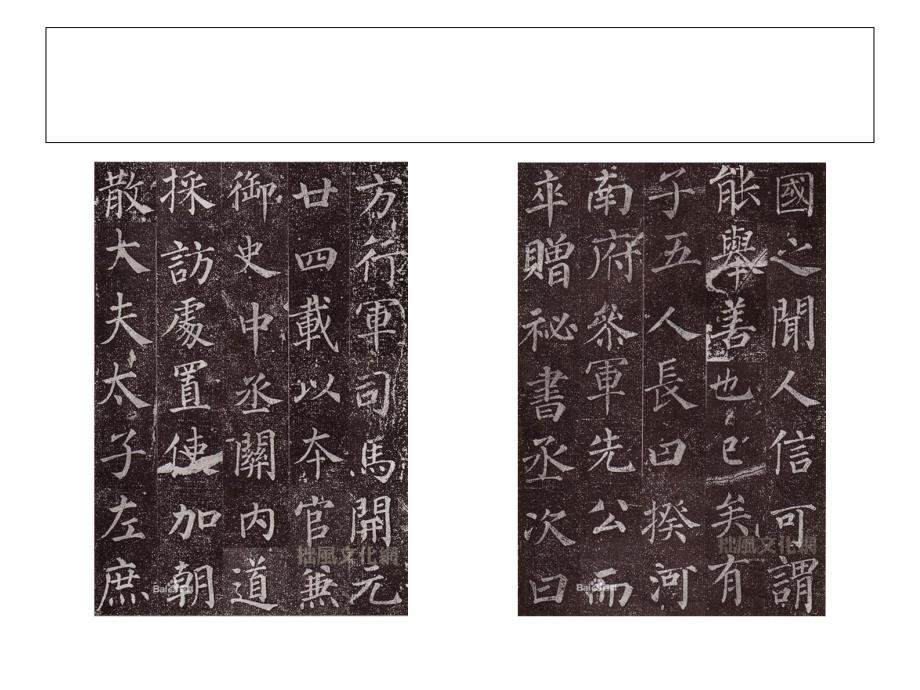 方行軍司馬開元
廿四載以本官兼
御史中丞關內道
採訪處置使加朝
散大夫太子左庶
拙風文化網
國之聞人信可謂
能舉善也已矣有
子五人長曰揆河
南府叅軍先公而
卒贈祕書丞次曰
拙風文化網